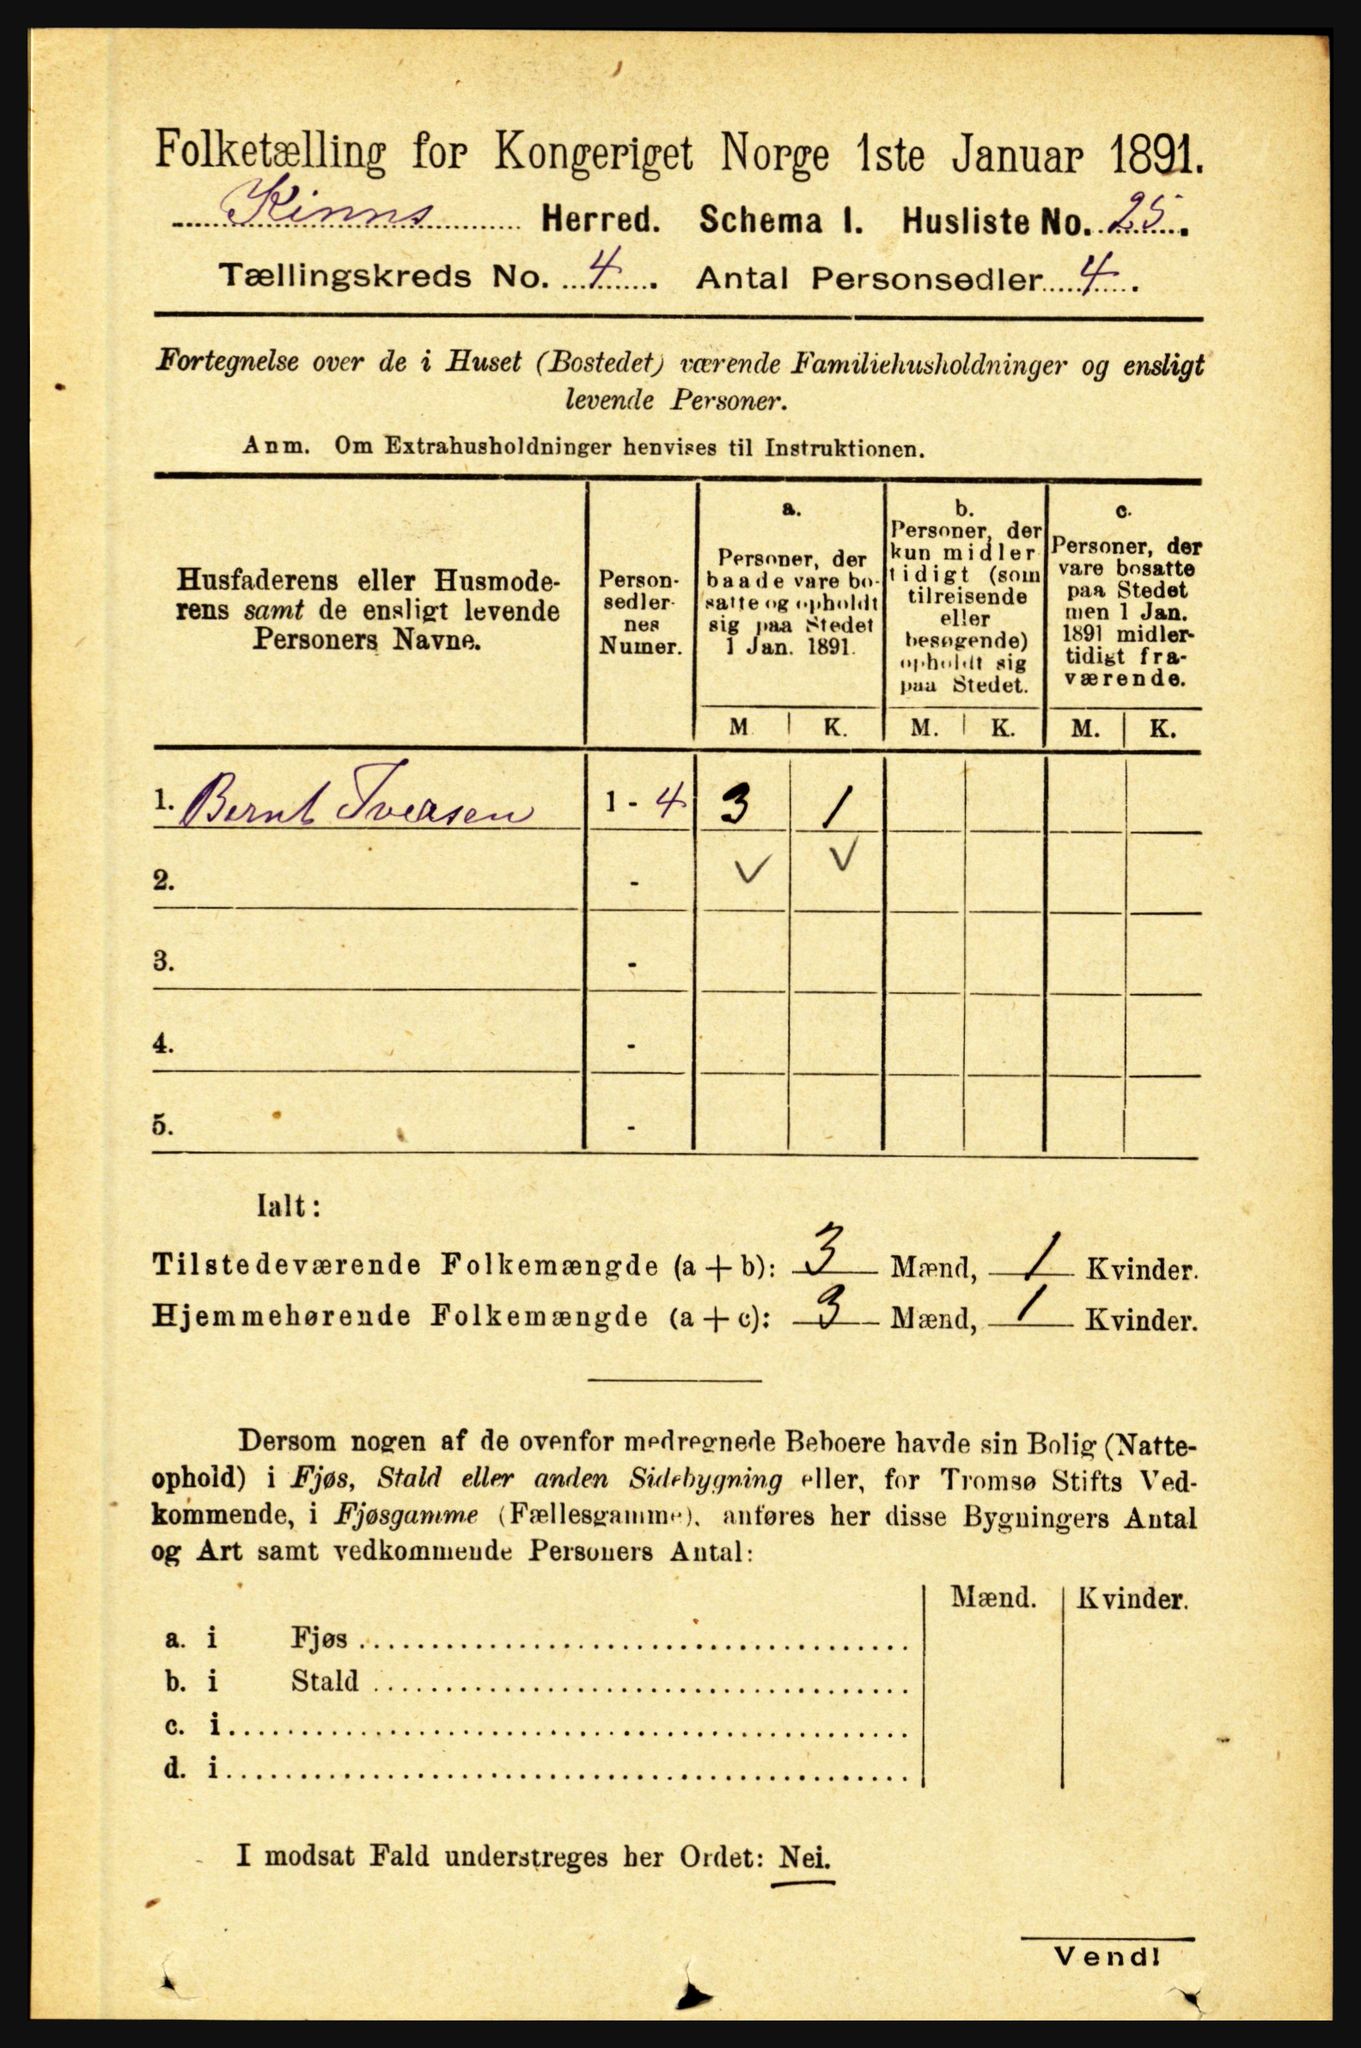 Folketælling for Kongeriget Norge 1ste Januar 1891.
Kinns Herred. Schema I. Husliste No. 25.
Tællingskreds No. 4. Antal Personsedler 4.
Fortegnelse over de i Huset (Bostedet) værende Familiehusholdninger og ensligt
levende Personer.
Anm. Om Extrahusholdninger henvises til Instruktionen.
Husfaderens eller Husmode-
rens samt de ensligt levende
Personers Navne.
Person-
sedler-
nes
Numer.
a.
Personer, der
baade vare bo-
satte og opholdt
sig paa Stedet
1 Jan. 1891.
b.
Personer, der
kun midler
tidigt (som
tilreisende
eller
besøgende)
opholdt sig
paa Stedet.
c.
Personer, der
vare bosatte
paa Stedet
men 1 Jan.
1891 midler-
tidigt fra-
værende.
M K. M. K. M. K.
1. Bernt Iversen 1 - 4 3 1
2. - V V
3. -
4. -
5. -
Ialt:
Tilstedeværende Folkemængde (a + b): 3 Mænd, 1 Kvinder.
Hjemmehørende Folkemængde (a + c): 3 Mænd, 1 Kvinder.
Dersom nogen af de ovenfor medregnede Beboere havde sin Bolig (Natte-
ophold) i Fjøs, Stald eller anden Sidebygning eller, for Tromsø Stifts Ved-
kommende, i Fjøsgamme (Fællesgamme), anføres her disse Bygningers Antal
og Art samt vedkommende Personers Antal:
Mænd. Kvinder.
a. i Fjøs
b. i Stald
c. i
d. i
I modsat Fald understreges her Ordet: Nei.
Vend!